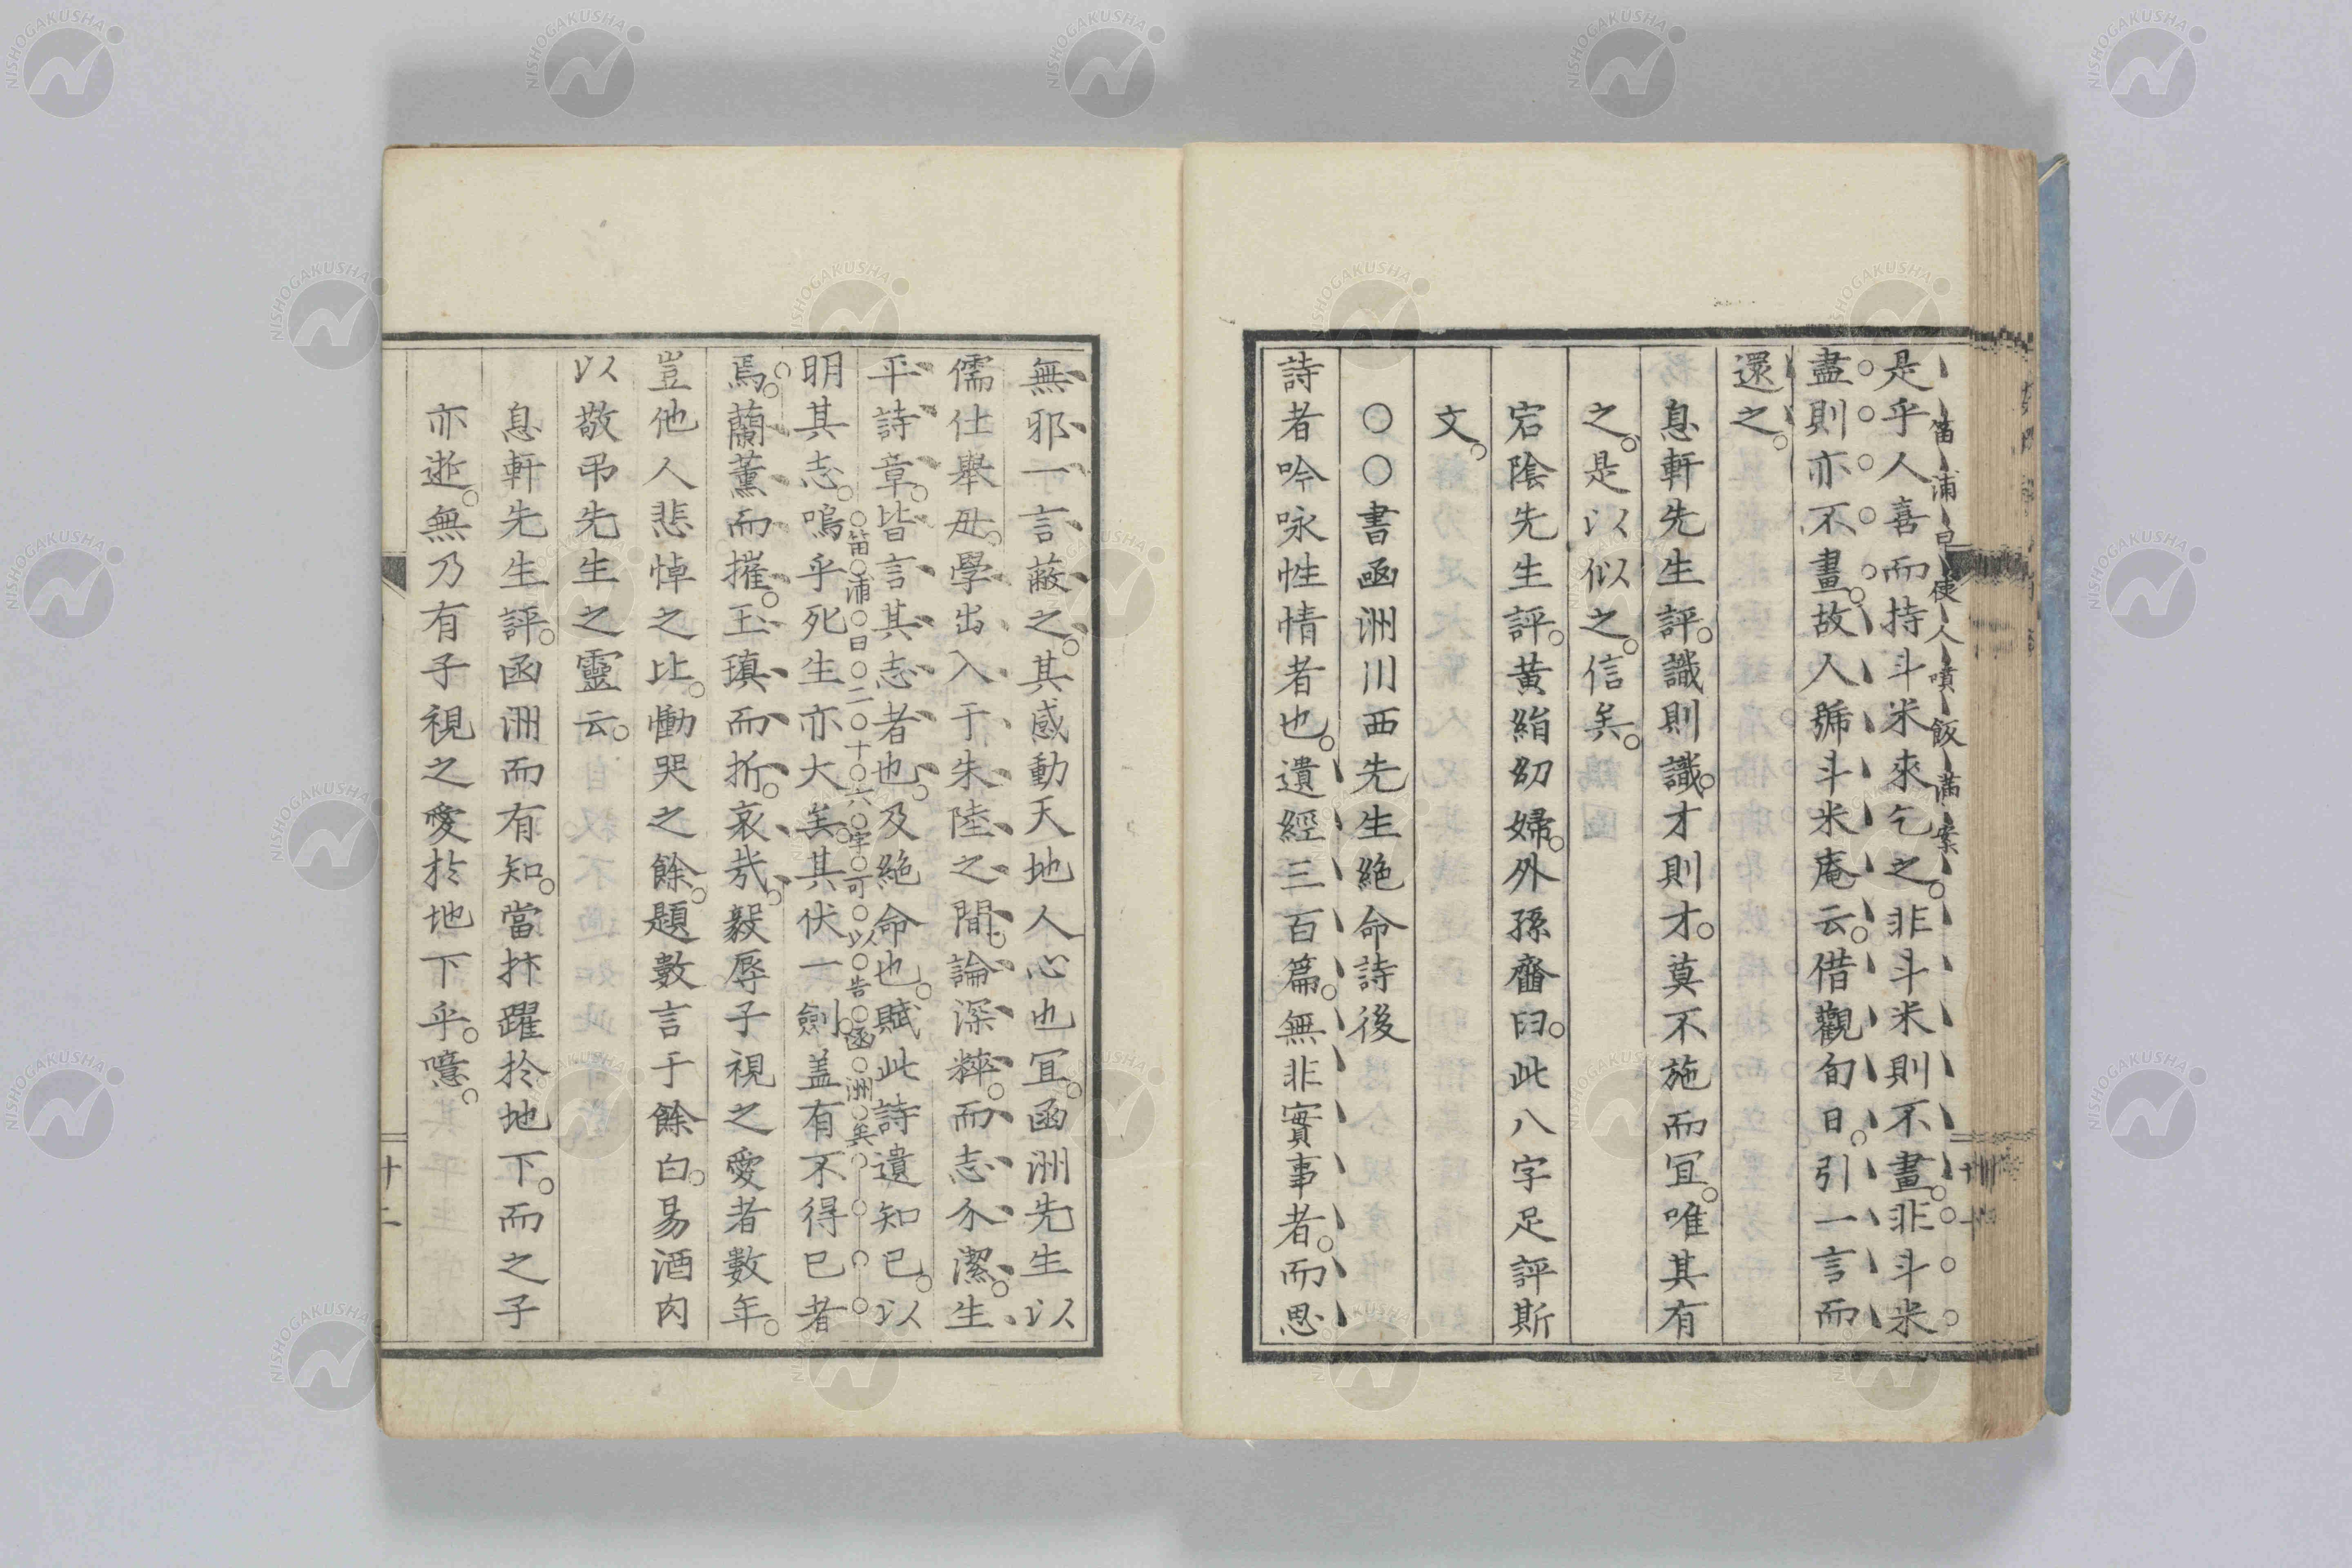 笛浦曰使人噴飯滿案
是乎人喜而持斗米來乞之非斗米則不畫非斗米
盡則亦不畫故人號斗米庵云借觀旬日引一言而
還之
息軒先生評識則識才則才莫不施而冝唯其有
之是以似之信矣
宕陰先生評黄絹幼婦外孫齏臼此八字足評斯
文
〇〇書函洲川西先生絶命詩後
詩者吟咏性情者也遺經三百篇無非實事者而思
無邪一言蔽之其感動天地人心也冝函洲先生以
儒仕舉毋學出入于朱陸之間論深粹而志介潔生
平詩章皆言其志者也及絶命也賦此詩遺知已以
笛浦曰二十六字可以告函洲矣
明其志嗚乎死生亦大矣其伏一劍盖有不得已者
焉蘭薰而摧玉瑱而折哀哉毅辱子視之愛者數年
豈他人悲悼之比慟哭之餘題數言于餘白易酒肉
以敬弔先生之靈云
息軒先生評函洲而有知當抃躍於地下而之子
亦逝無乃有子視之愛於地下乎噫
十二
NISHOGAKUSHA